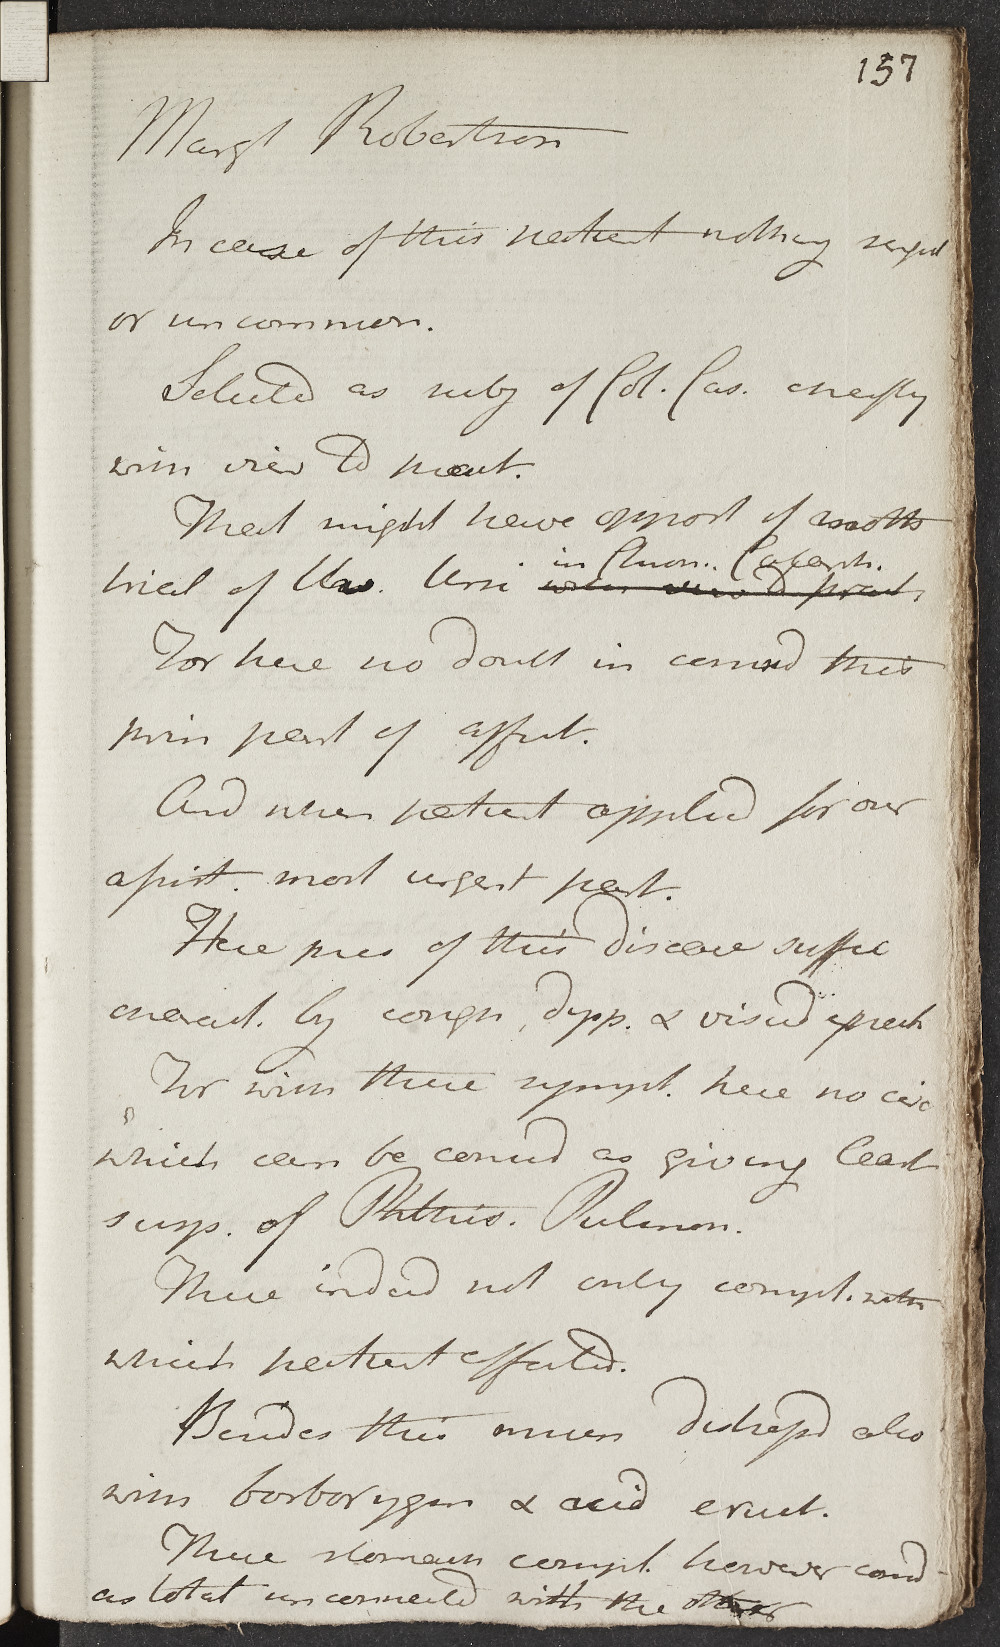 157
Margt Robertson
In case of this patient nothing singul
or uncommon.
Selected as subj of Col. Cas. chiefly
with view to treat.
That might have opport of another
trial of Uv. Ursi in Chron. Catarrh.
For here no doubt in considd this
prin part of affect.
And when patient applied for our
assist. most urgent part.
Here pres of this disease suffic
charact. by cough, dysp. & viscid expect
For with these sympt. here no circ
which can be consid as giving least
susp. of Phthis. Pulmon.
These indeed not only compl. with
which patient affected.
Besides this much distressd also
with borborygm & acid eruct.
These stomach compl. however consd
as total unconnected with the other